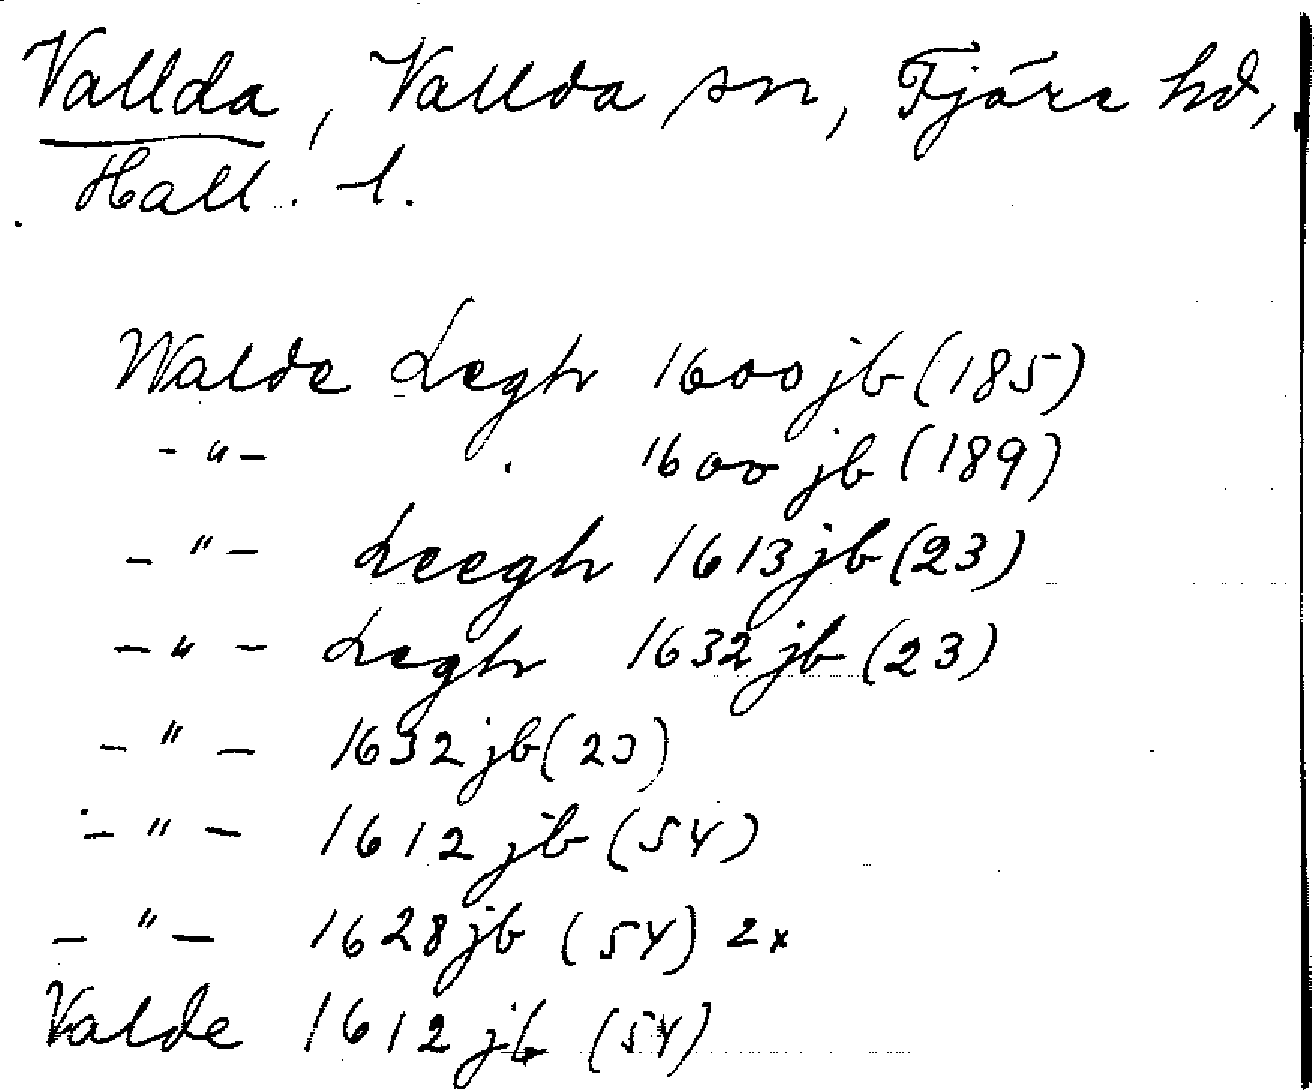 Vallda, Vallda sn, Fjäre hd,
Hall. l.
Walde Legh 1600 jb (185)
-"- 1600 jb (189)
-"- Leegh 1613 jb (23)
-"- Legh 1632 jb (23)
-"- 1632 jb (23)
-"- 1612 jb (54)
-"- 1628 jb (54) 2x
Valde 1612 jb (54)